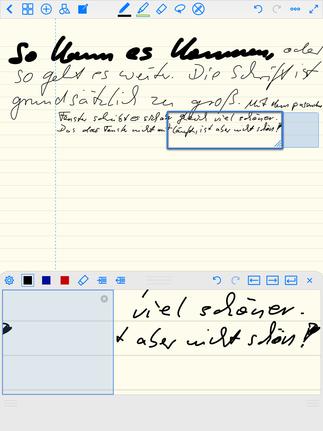 So kann es kommen, oder
so geht es weiter. Die Schrift ist
grundsätzlich zu groß. Mit dem passenden
Fenster schreibt es sich gleich viel schöner.
Das das Fenster nicht mit läuft, ist aber nicht schön!
viel schöner.
t aber nicht schön!